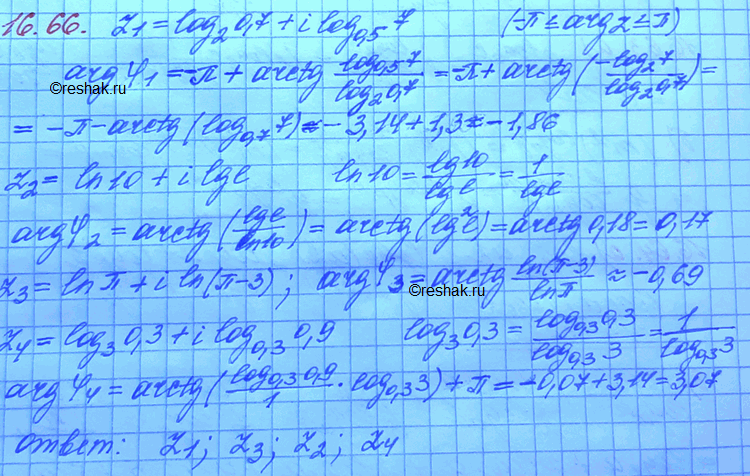 16.66. z₁ = log₂0,7 + i log₀,₅7 (-π ≤ arg z ≤ π)
arg φ₁ = -π + arctg log₀,₅7 / log₂0,7 = -π + arctg (-log₂7 / log₂0,7) =
©reshak.ru
= -π - arctg (log₀,₇7) ≈ -3,14 + 1,3 ≈ -1,86
z₂ = ln10 + i lge ln10 = lg10 / lge = 1 / lge
arg φ₂ = arctg (lge / ln10) = arctg (lg²e) = arctg 0,18 = 0,17
z₃ = lnπ + i ln(π-3); arg φ₃ = arctg ln(π-3) / lnπ ≈ -0,69
©reshak.ru
z₄ = log₃0,3 + i log₀,₃0,9 log₃0,3 = log₀,₃0,3 / log₀,₃3 = 1 / log₀,₃3
arg φ₄ = arctg (log₀,₃0,9 / 1 · log₀,₃3) + π = -0,07 + 3,14 = 3,07
ответ: z₁; z₃; z₂; z₄